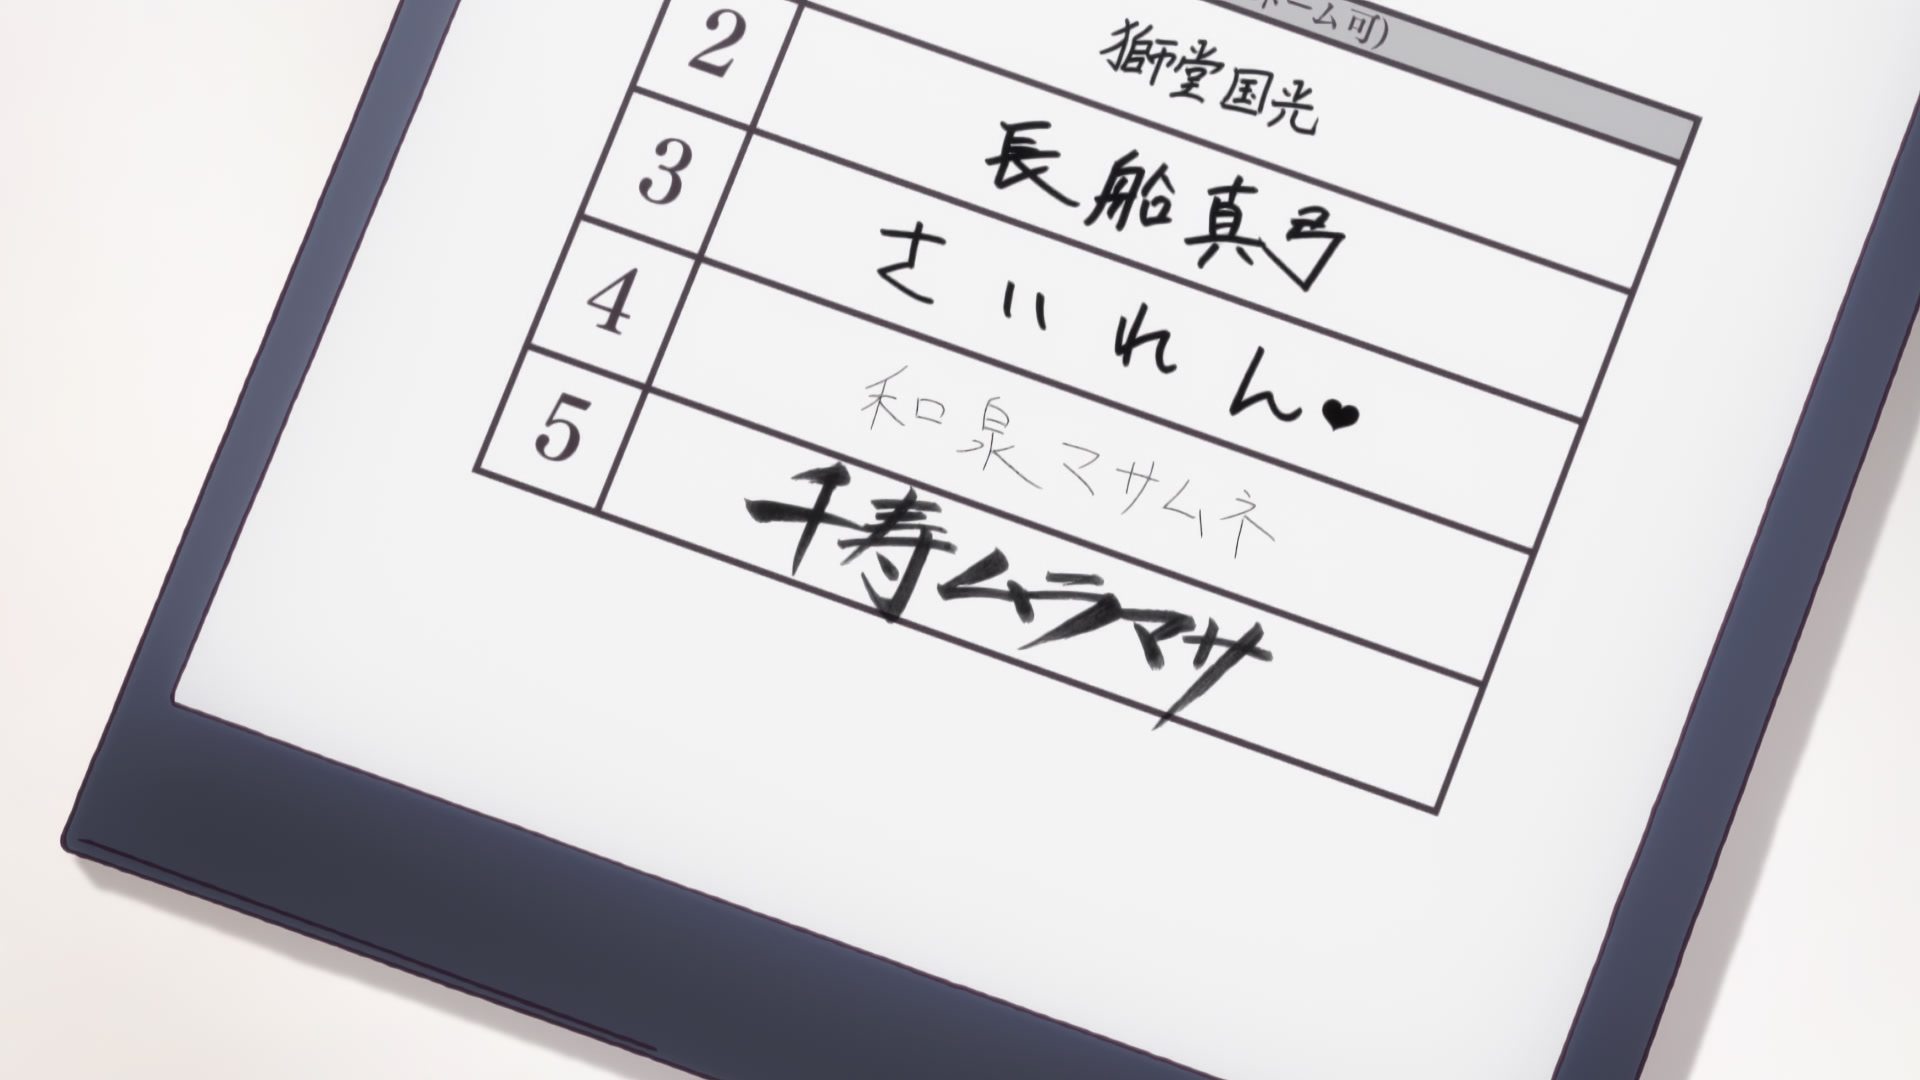 ーム可)
獅堂国光
2 長船真弓
3 さいれん♥
4 和泉マサムネ
5 千寿ムラマサ